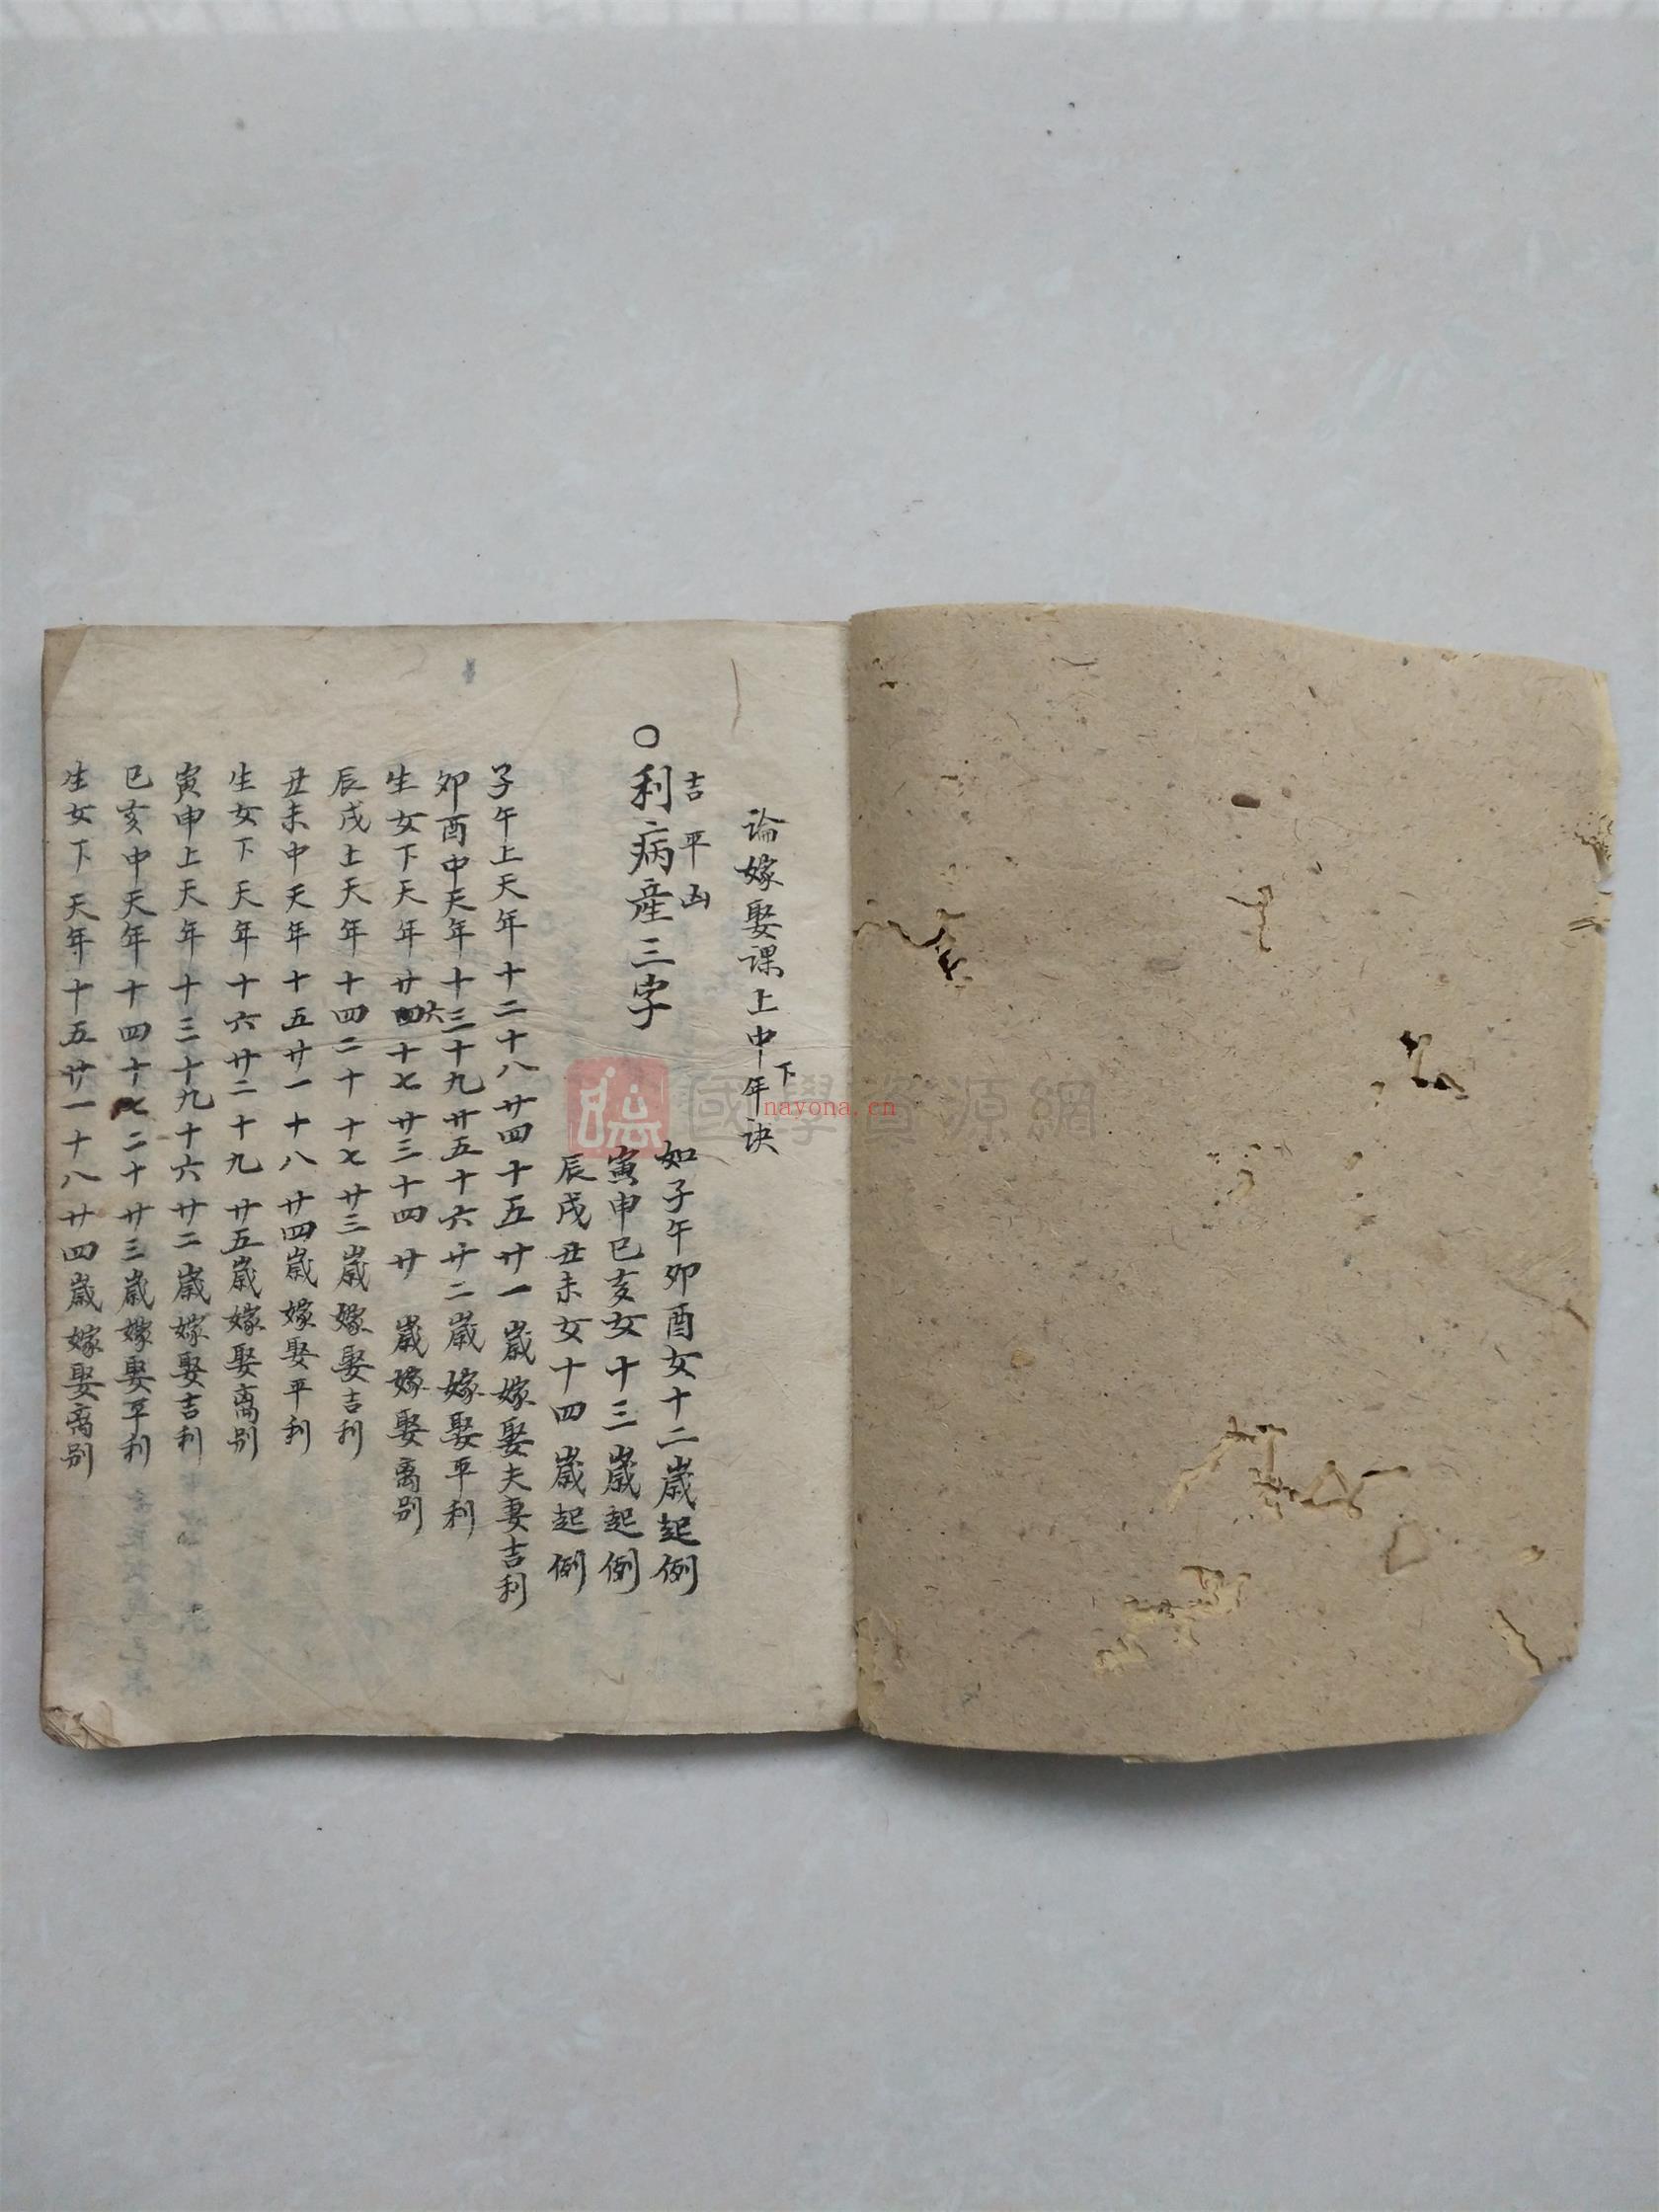 論嫁娶課上中下年诀
吉 平 凶
○利病産三字
如子午卯酉女十二歲起例
寅申巳亥女十三歲起例
辰戌丑未女十四歲起例
子午上天年十二十八廿四十五廿一歲嫁娶夫妻吉利
卯酉中天年十三十九廿五十六廿二歲嫁娶平利
生女下天年廿六十七廿三十四廿 歲嫁娶离别
辰戌上天年十四二十十七廿三歲嫁娶吉利
丑未中天年十五廿一十八廿四歲嫁娶平利
生女下天年十六廿二十九廿五歲嫁娶离别
寅申上天年十三十九十六廿二歲嫁娶吉利
巳亥中天年十四十七二十廿三歲嫁娶平利
生女下天年十五廿一十八廿四歲嫁娶离别
國學資源網
nayona.cn